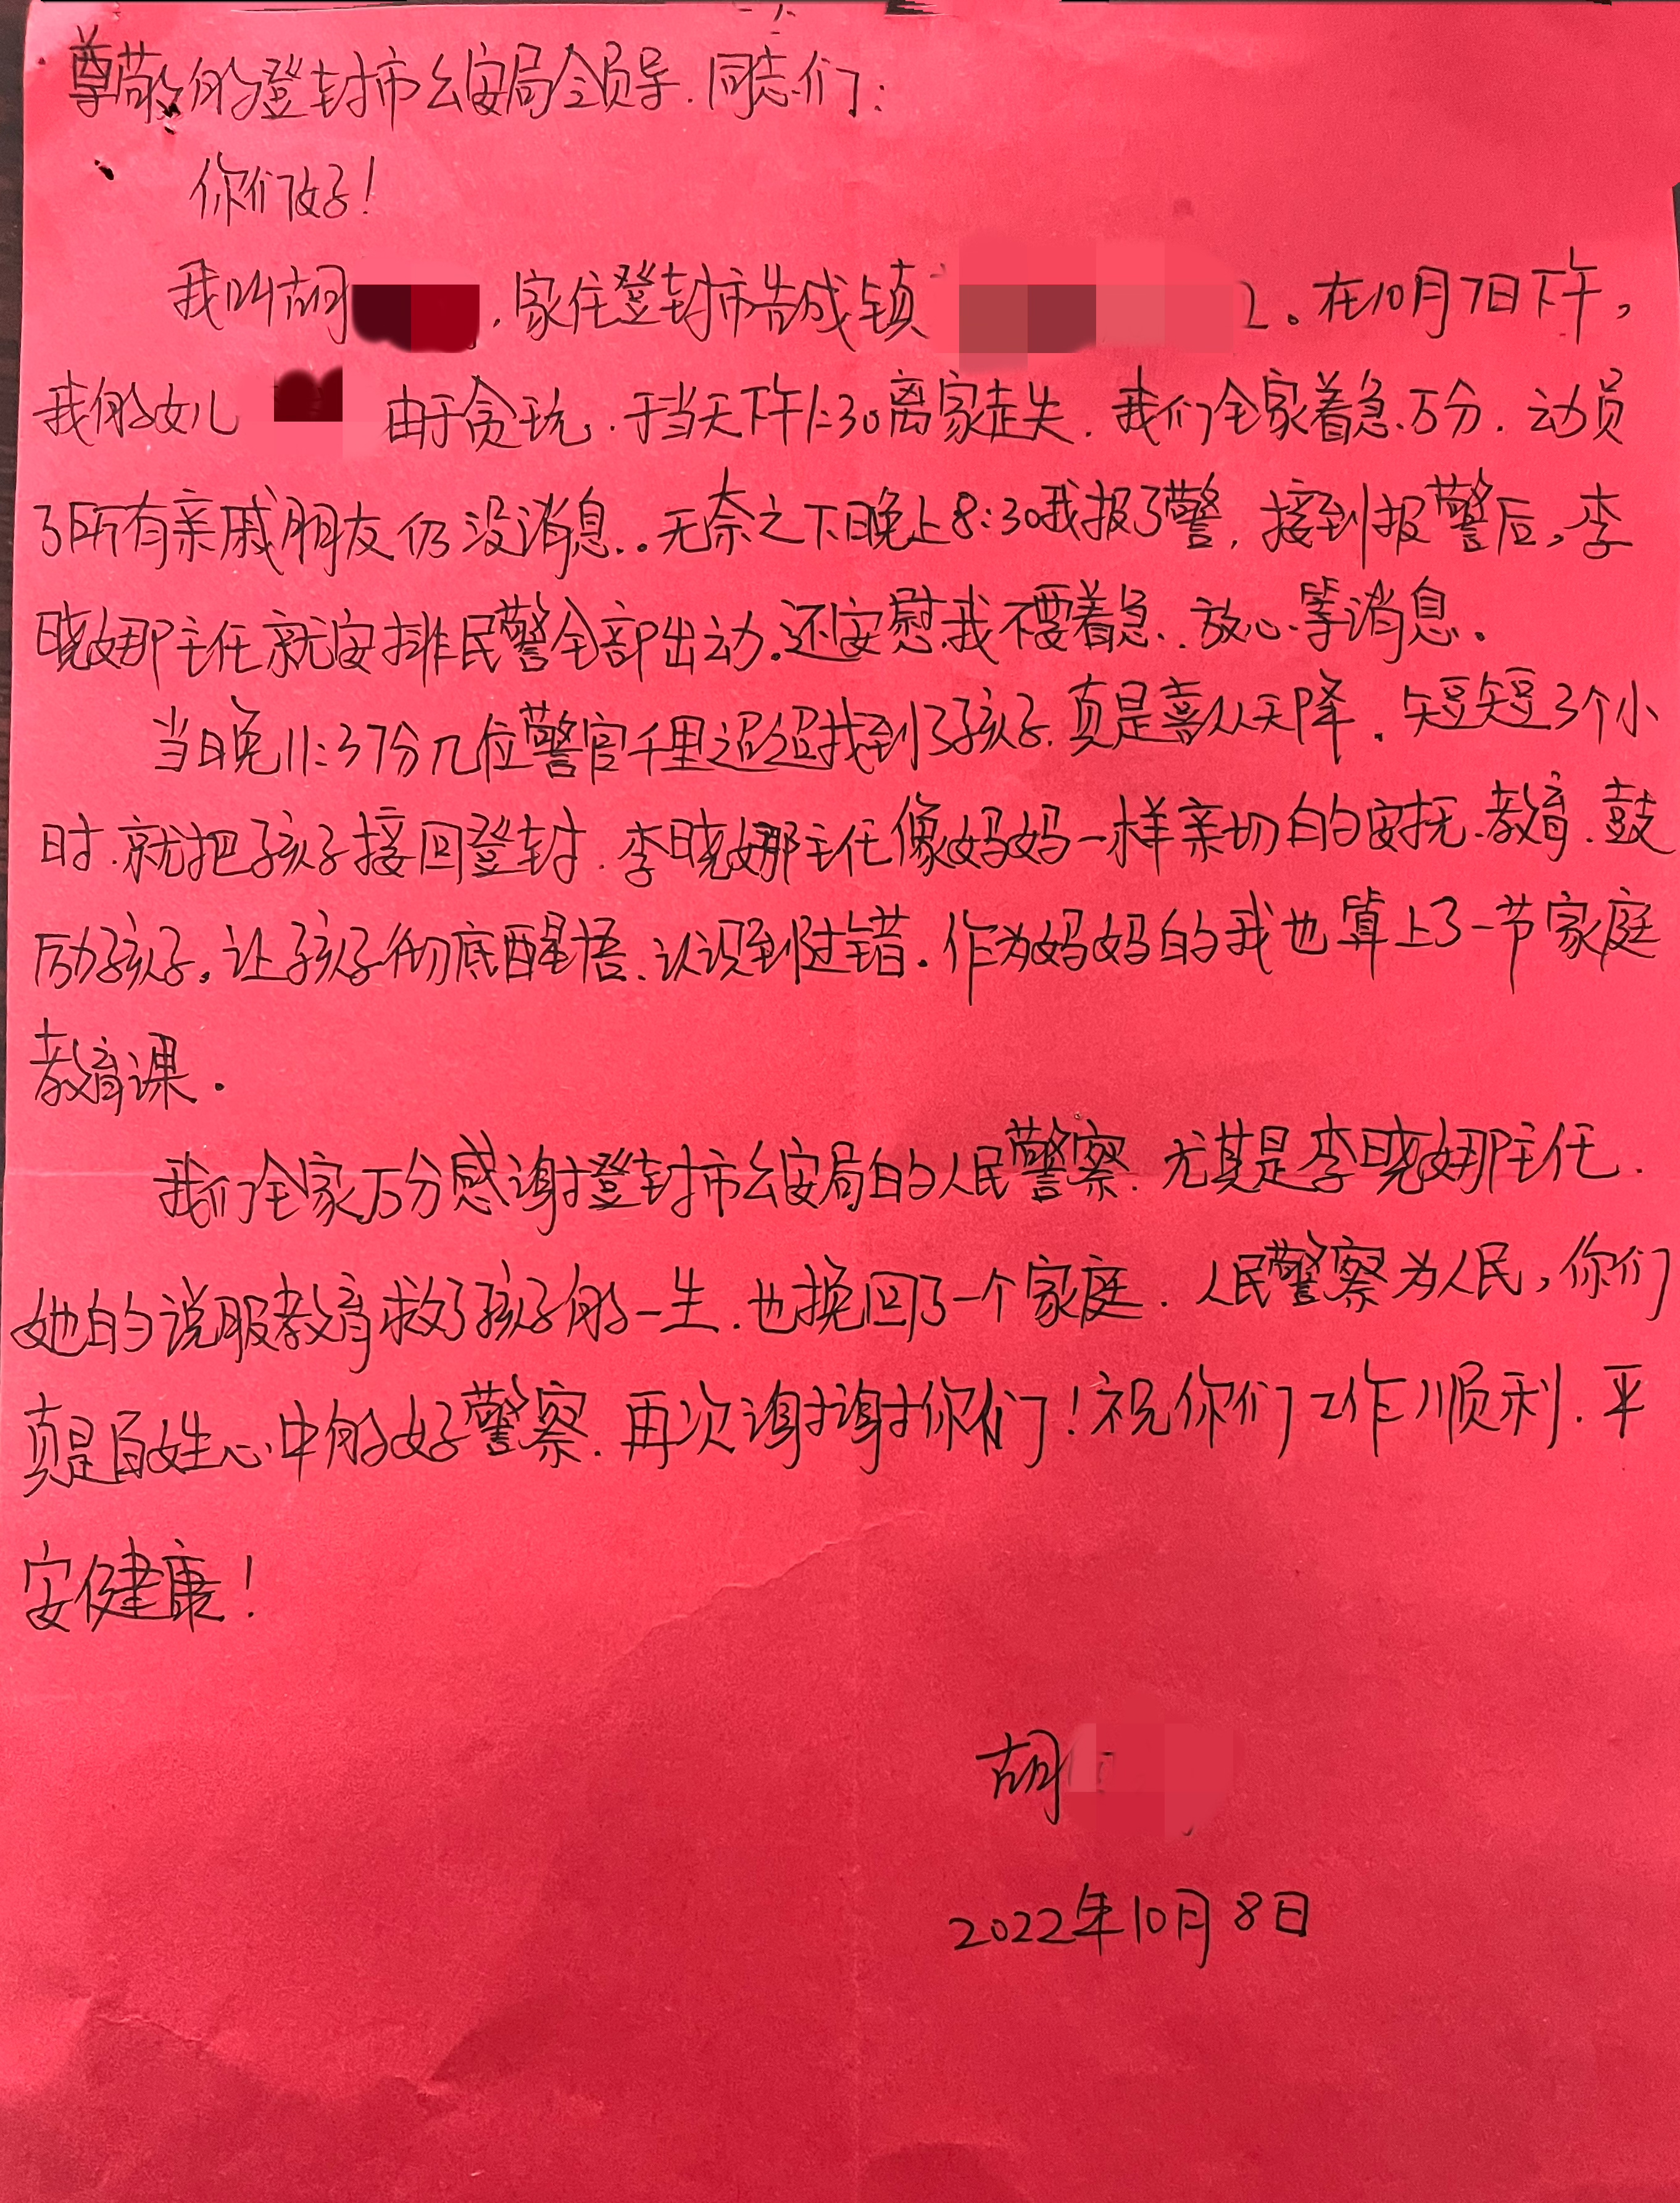 尊敬的登封市公安局全员导.同志们:
你们好!
我叫胡 .家住登封市告成镇 。在10月7日下午,
我的女儿 由于贪玩.于当天下午1:30离家走失.我们全家着急万分.动员
了所有亲戚朋友仍没消息..无奈之下晚上8:30我报了警.接到报警后,李
晓娜主任就安排民警全部出动.还安慰我不要着急.放心等消息。
当晚11:37分几位警官千里迢迢找到了孩子.真是喜从天降.短短3个小
时.就把孩子接回登封.李晓娜主任像妈妈一样亲切的安抚.教育.鼓
励孩子。让孩子彻底醒悟.认识到过错.作为妈妈的我也算上了一节家庭
教育课.
我们全家万分感谢登封市公安局的人民警察.尤其是李晓娜主任.
她的说服教育救了孩子的一生.也挽回了一个家庭.人民警察为人民,你们
真是百姓心中的好警察.再次谢谢你们!祝你们工作顺利.平
安健康!
胡
2022年10月8日